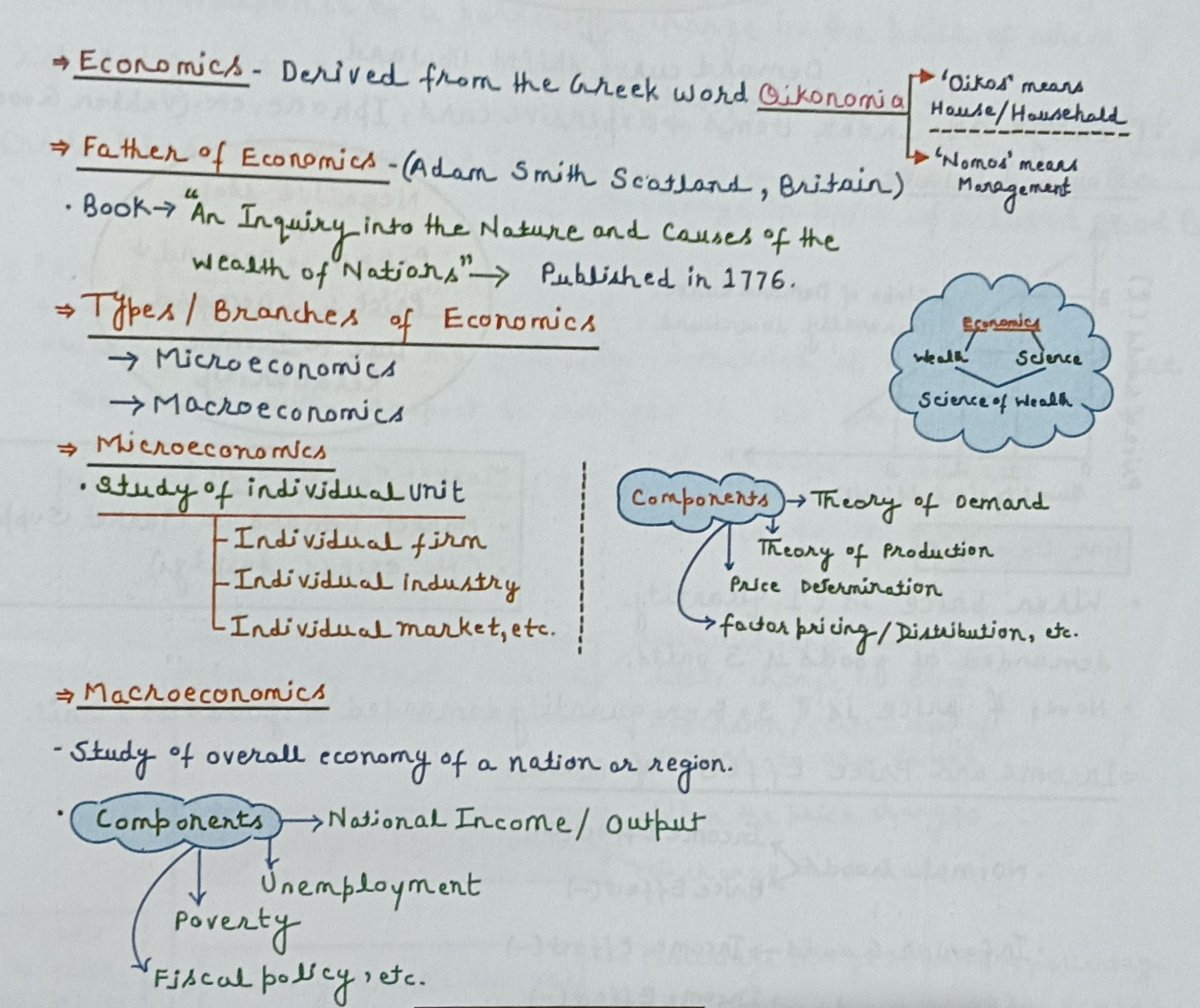 ⇒ Economics - Derived from the Greek word Oikonomia
→ 'Oikos' means
House/Household
→ 'Nomos' means
Management
⇒ Father of Economics - (Adam Smith Scotland, Britain)
· Book → "An Inquiry into the Nature and Causes of the
Wealth of Nations" → Published in 1776.
⇒ Types / Branches of Economics
→ Microeconomics
→ Macroeconomics
Economics
Wealth Science
Science of Wealth
⇒ Microeconomics
· Study of individual unit
- Individual firm
- Individual industry
- Individual market, etc.
Components → Theory of Demand
Theory of Production
Price Determination
factor pricing / Distribution, etc.
⇒ Macroeconomics
- Study of overall economy of a nation or region.
· Components → National Income / Output
Unemployment
Poverty
Fiscal policy, etc.